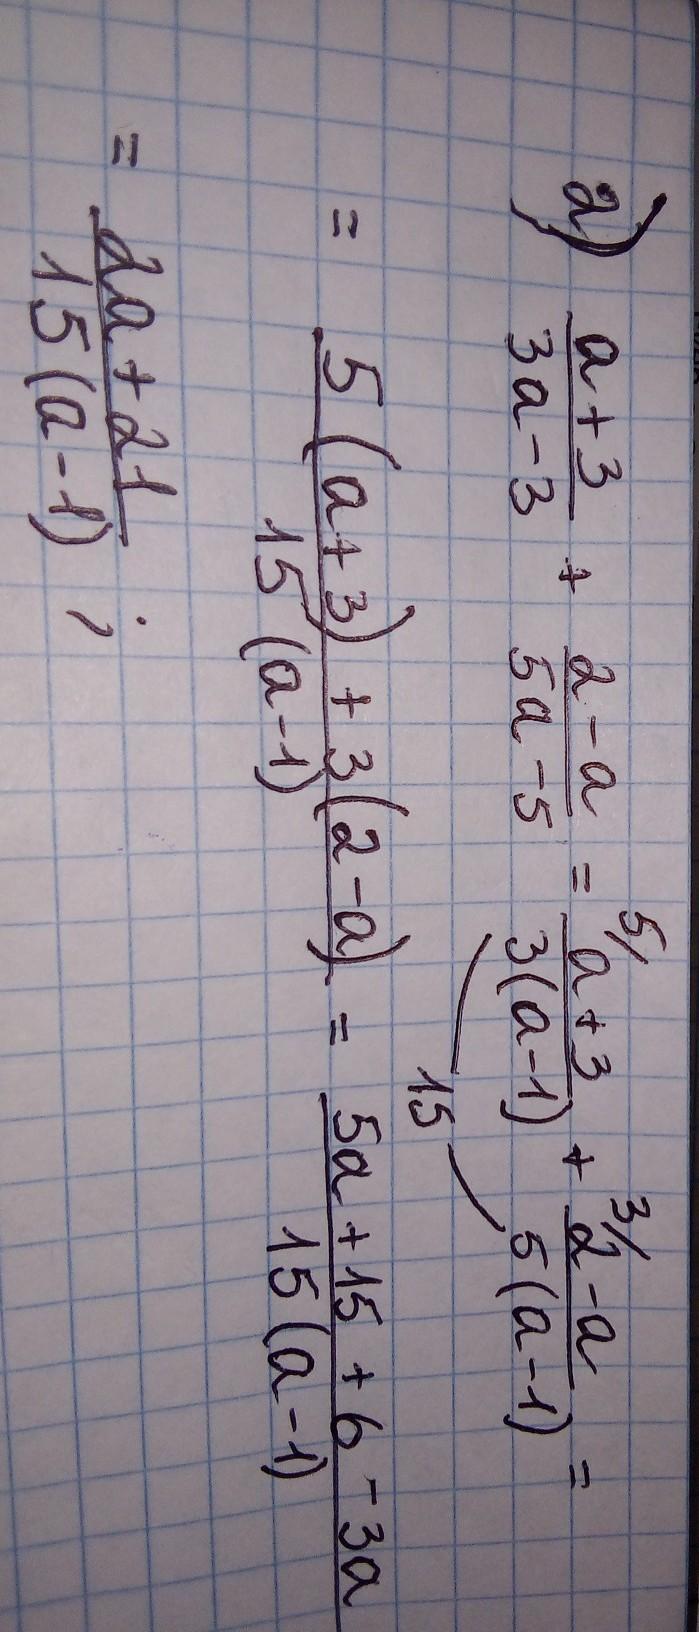 2) (a+3)/(3a-3) + (2-a)/(5a-5) = 5/ (a+3)/(3(a-1)) + 3/ (2-a)/(5(a-1)) =
15
= (5(a+3)+3(2-a))/(15(a-1)) = (5a+15+6-3a)/(15(a-1))
= (2a+21)/(15(a-1)) ;